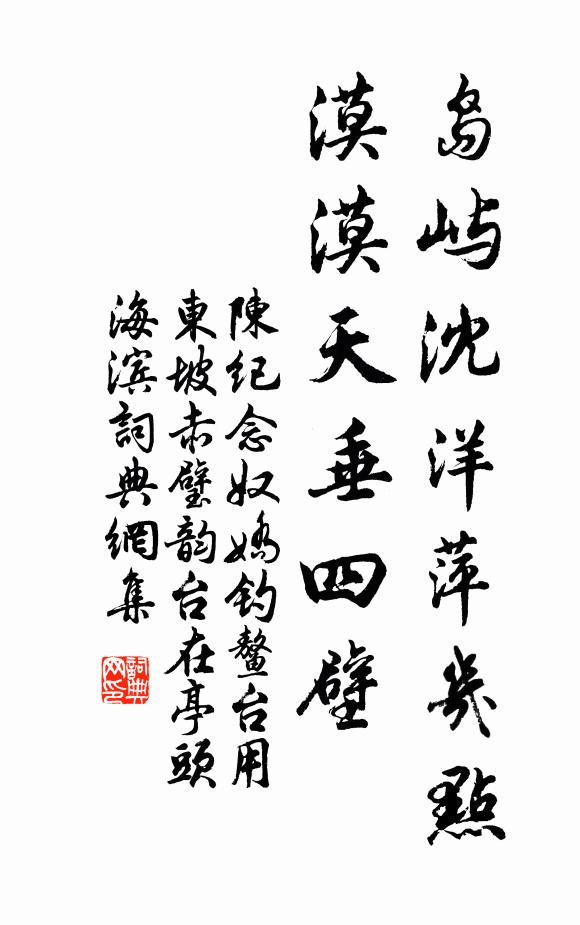 島嶼沈洋萍幾點
漠漠天垂四壁
陳紀念奴嬌釣鰲台用
東坡赤壁韵台在亭頭
海滨詞典網集
詞典网印